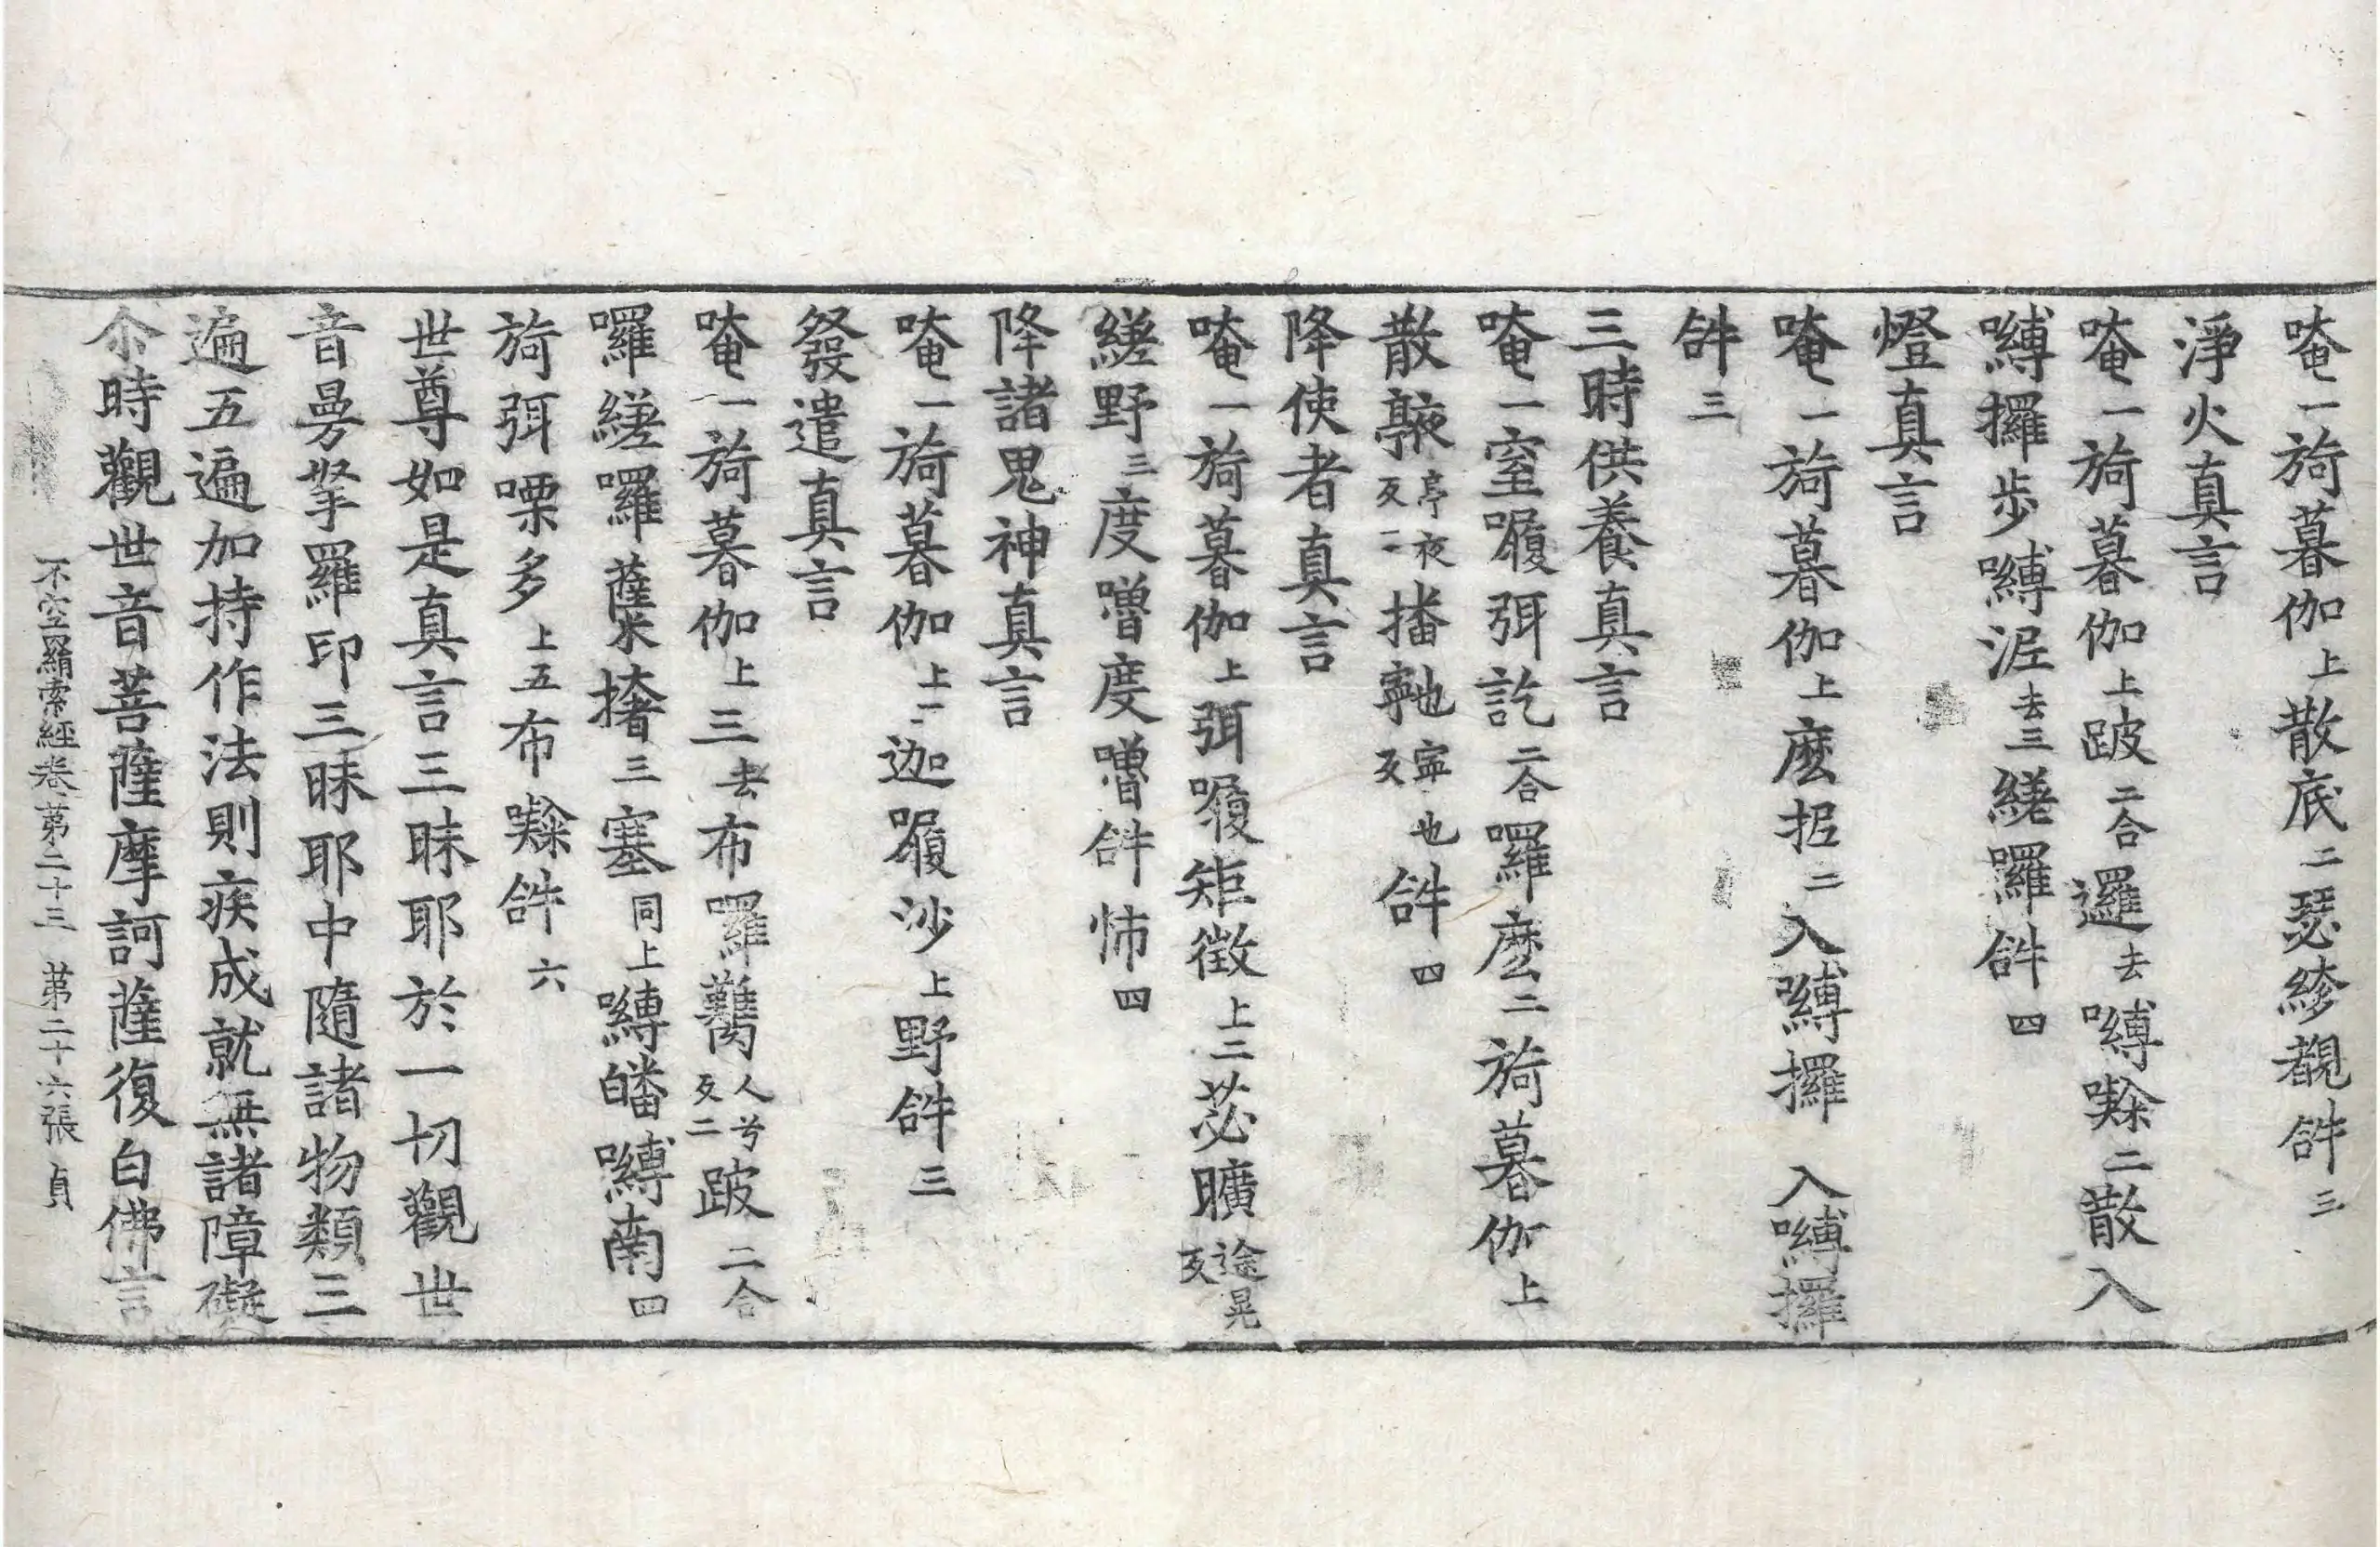 唵一旖暮伽上散底二瑟縿覩𤙖三
淨火真言
唵一旖暮伽上跛二合邏去嚩㗚二散入
嚩攞步嚩浘去三縒囉𤙖四
燈真言
唵一旖暮伽上麽抳二入嚩攞入嚩攞
𤙖三
三時供養真言
唵一窒𡃤弭訖二合囉麽二旖暮伽上
散𠆙亭夜反二播𡁠寧也反𤙖四
降使者真言
唵一旖暮伽上弭𡃤矩徵上二苾曠途晃反
縒野三度嚕度嚕𤙖㤄四
降諸鬼神真言
唵一旖暮伽上二迦𡃤沙上野𤙖三
發遣真言
唵一旖暮伽上三去布囉𪇆人兮反二跛二合
囉縒囉薩㨋三塞同上嚩皤嚩南四
旖弭㗚多上五布㗚𤙖六
世尊如是真言三昧耶於一切觀世
音曼拏羅印三昧耶中隨諸物類三
遍五遍加持作法則疾成就無諸障礙
尒時觀世音菩薩摩訶薩復白佛言
不空羂索經卷第二十三 第二十六張 貞